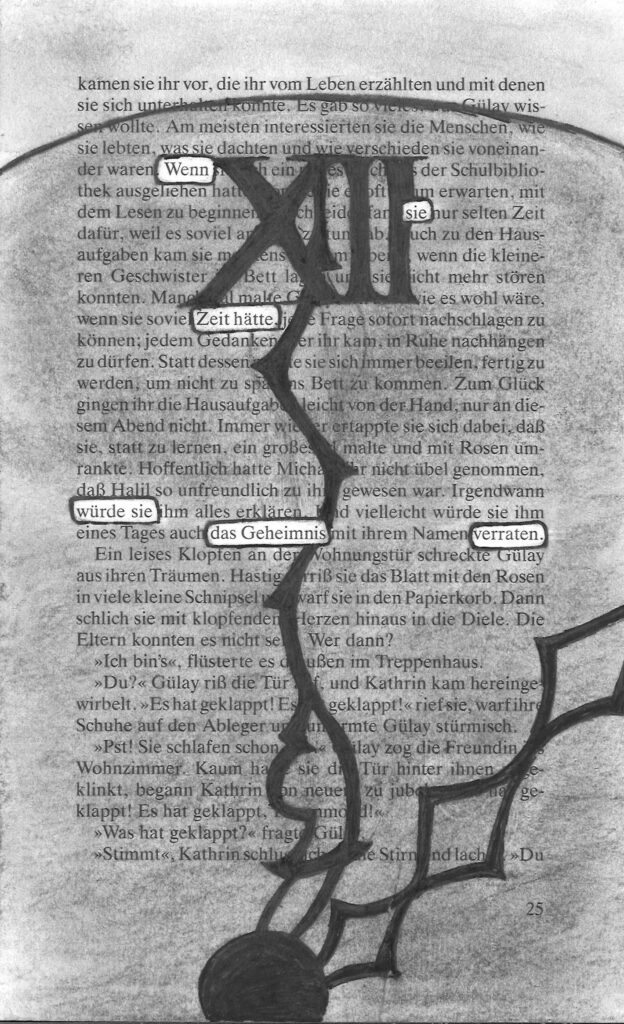 kamen sie ihr vor, die ihr vom Leben erzählten und mit denen
sie sich unterhalten konnte. Es gab so vieles, was Gülay wis-
sen wollte. Am meisten interessierten sie die Menschen, wie
sie lebten, was sie dachten und wie verschieden sie voneinan-
der waren. Wenn ein der Schulbiblio-
XII
thek ausgeliehen hatte, erwarten, mit
dem Lesen zu beginnen. fand sie nur selten Zeit
dafür, weil es soviel gab. Auch zu den Haus-
aufgaben kam sie wenn die kleine-
ren Geschwister im Bett lagen und sie nicht mehr stören
konnten. Manchmal malte wie es wohl wäre,
wenn sie soviel Zeit hätte, jede Frage sofort nachschlagen zu
können; jedem Gedanken, der ihr kam, in Ruhe nachhängen
zu dürfen. Statt dessen mußte sie sich immer beeilen, fertig zu
werden, um nicht zu spät ins Bett zu kommen. Zum Glück
gingen ihr die Hausaufgaben leicht von der Hand, nur an die-
sem Abend nicht. Immer wieder ertappte sie sich dabei, daß
sie, statt zu lernen, ein großes malte und mit Rosen um-
rankte. Hoffentlich hatte Micha ihr nicht übel genommen,
daß Halil so unfreundlich zu ihm gewesen war. Irgendwann
würde sie ihm alles erklären. Und vielleicht würde sie ihm
eines Tages auch das Geheimnis mit ihrem Namen verraten.
Ein leises Klopfen an der Wohnungstür schreckte Gülay
aus ihren Träumen. Hastig zerriß sie das Blatt mit den Rosen
in viele kleine Schnipsel und warf sie in den Papierkorb. Dann
schlich sie mit klopfenden Herzen hinaus in die Diele. Die
Eltern konnten es nicht sein. Wer dann?
»Ich bin's«, flüsterte es draußen im Treppenhaus.
»Du?« Gülay riß die Tür auf, und Kathrin kam hereinge-
wirbelt. »Es hat geklappt! Es hat geklappt!« rief sie, warf ihre
Schuhe auf den Ableger und umarmte Gülay stürmisch.
»Pst! Sie schlafen schon Gülay zog die Freundin ins
Wohnzimmer. Kaum hatte sie die Tür hinter ihnen zuge-
klinkt, begann Kathrin von neuem zu jubeln. hat ge-
klappt! Es hat geklappt,
»Was hat geklappt?« fragte Gülay.
»Stimmt«, Kathrin schlug sich die Stirn und lachte. »Du
25